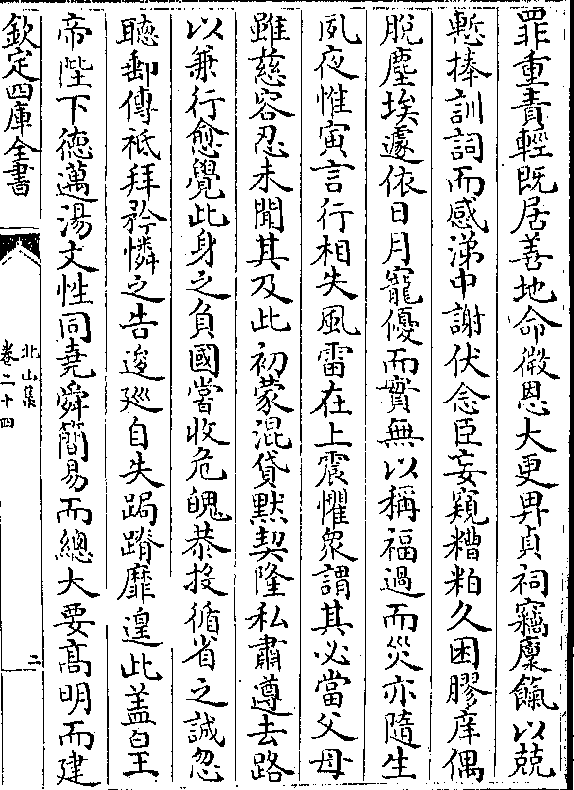 罪重責輕既居善地命微恩大更畀真祠竊廩餼以兢
慙捧訓詞而感涕中謝伏念臣妄窺糟粕久困膠庠偶
脫塵埃遽依日月寵優而實無以稱福過而災亦隨生
夙夜惟寅言行相失風雷在上震懼衆謂其必當父母
雖慈容忍未聞其及此初蒙混貸默契隆私肅遵去路
以兼行愈覺此身之負國嘗收危魄恭投循省之誠忽
聽郵傳祗拜矜憐之告逡巡自失跼蹐靡遑此盖皇王
帝陛下德邁湯文性同堯舜簡易而總大要髙明而建
欽定四庫全書
北山集
卷二十四
二